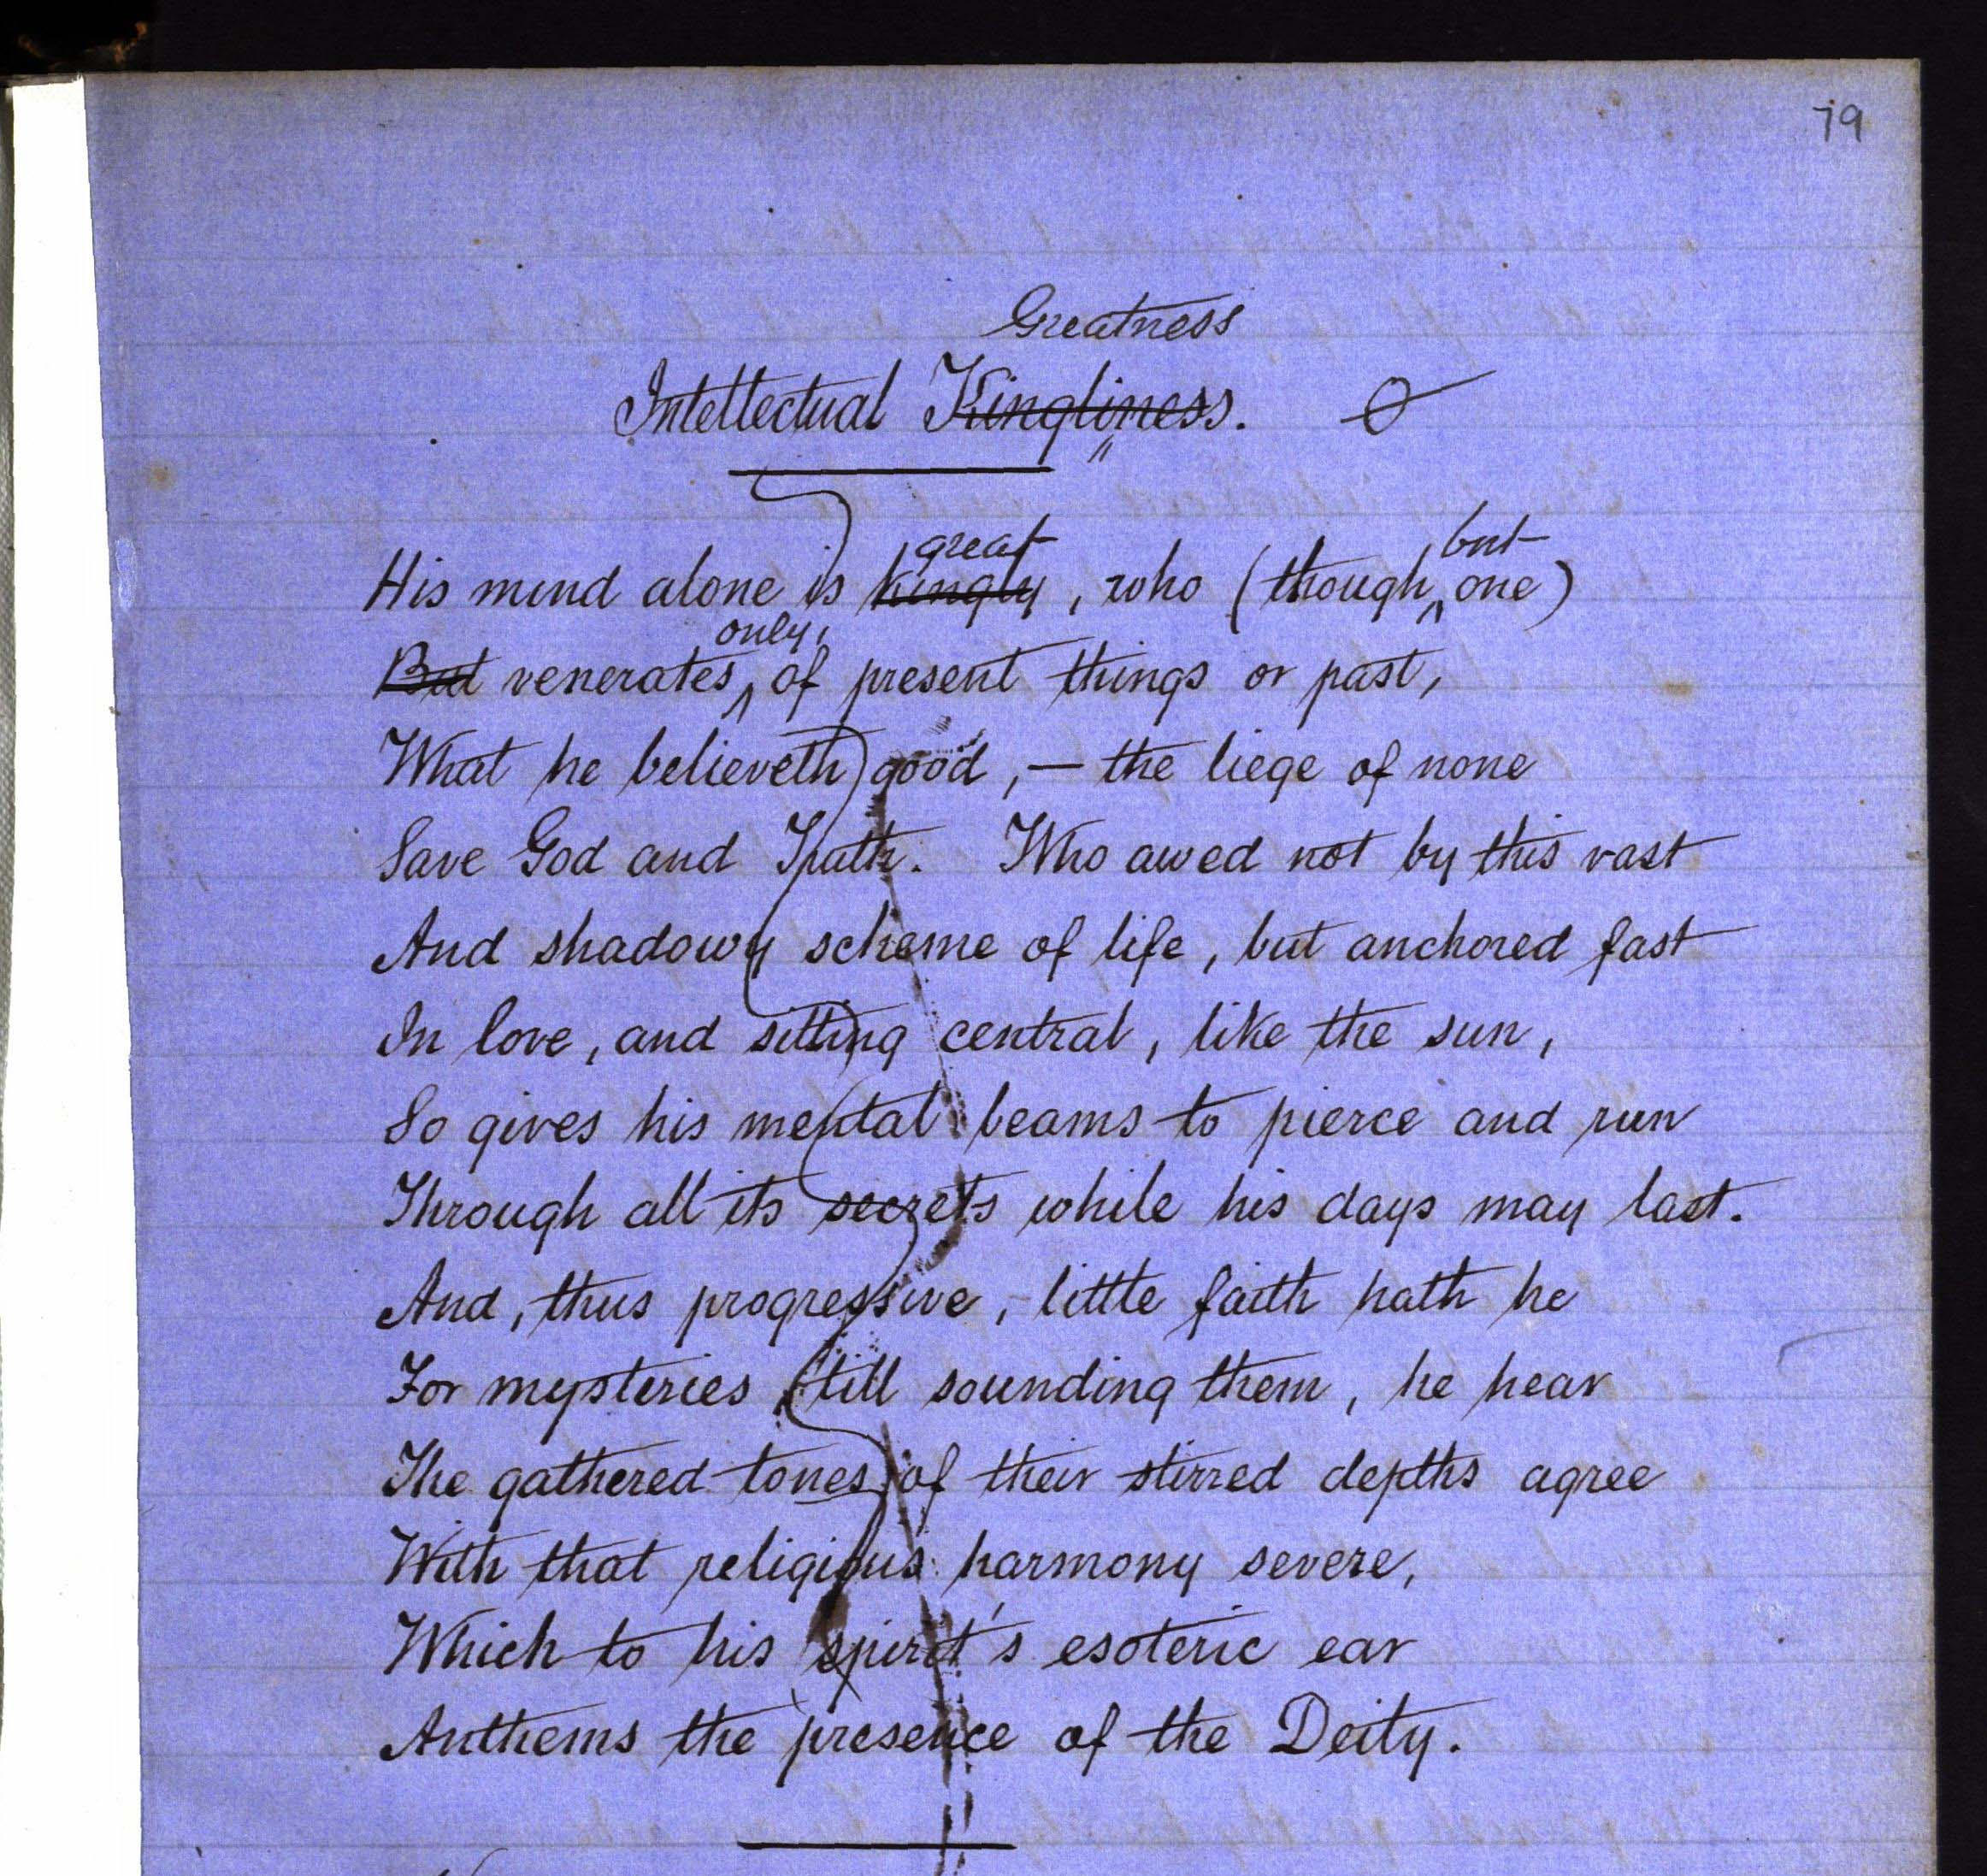 79
Greatness
Intellectual Kingliness.
great but
His mind alone is kingly, who (though one)
only,
But venerates, of present things or past,
What he believeth good, — the liege of none
Save God and Truth. Who awed not by this vast
And shadowy scheme of life, but anchored fast
In love, and sitting central, like the sun,
So gives his mental beams to pierce and run
Through all its secrets while his days may last.
And, thus progressive, little faith hath he
For mysteries still sounding them, he hear
The gathered tones of their stirred depths agree
With that religious harmony severe,
Which to his spirit's esoteric ear
Anthems the presence of the Deity.